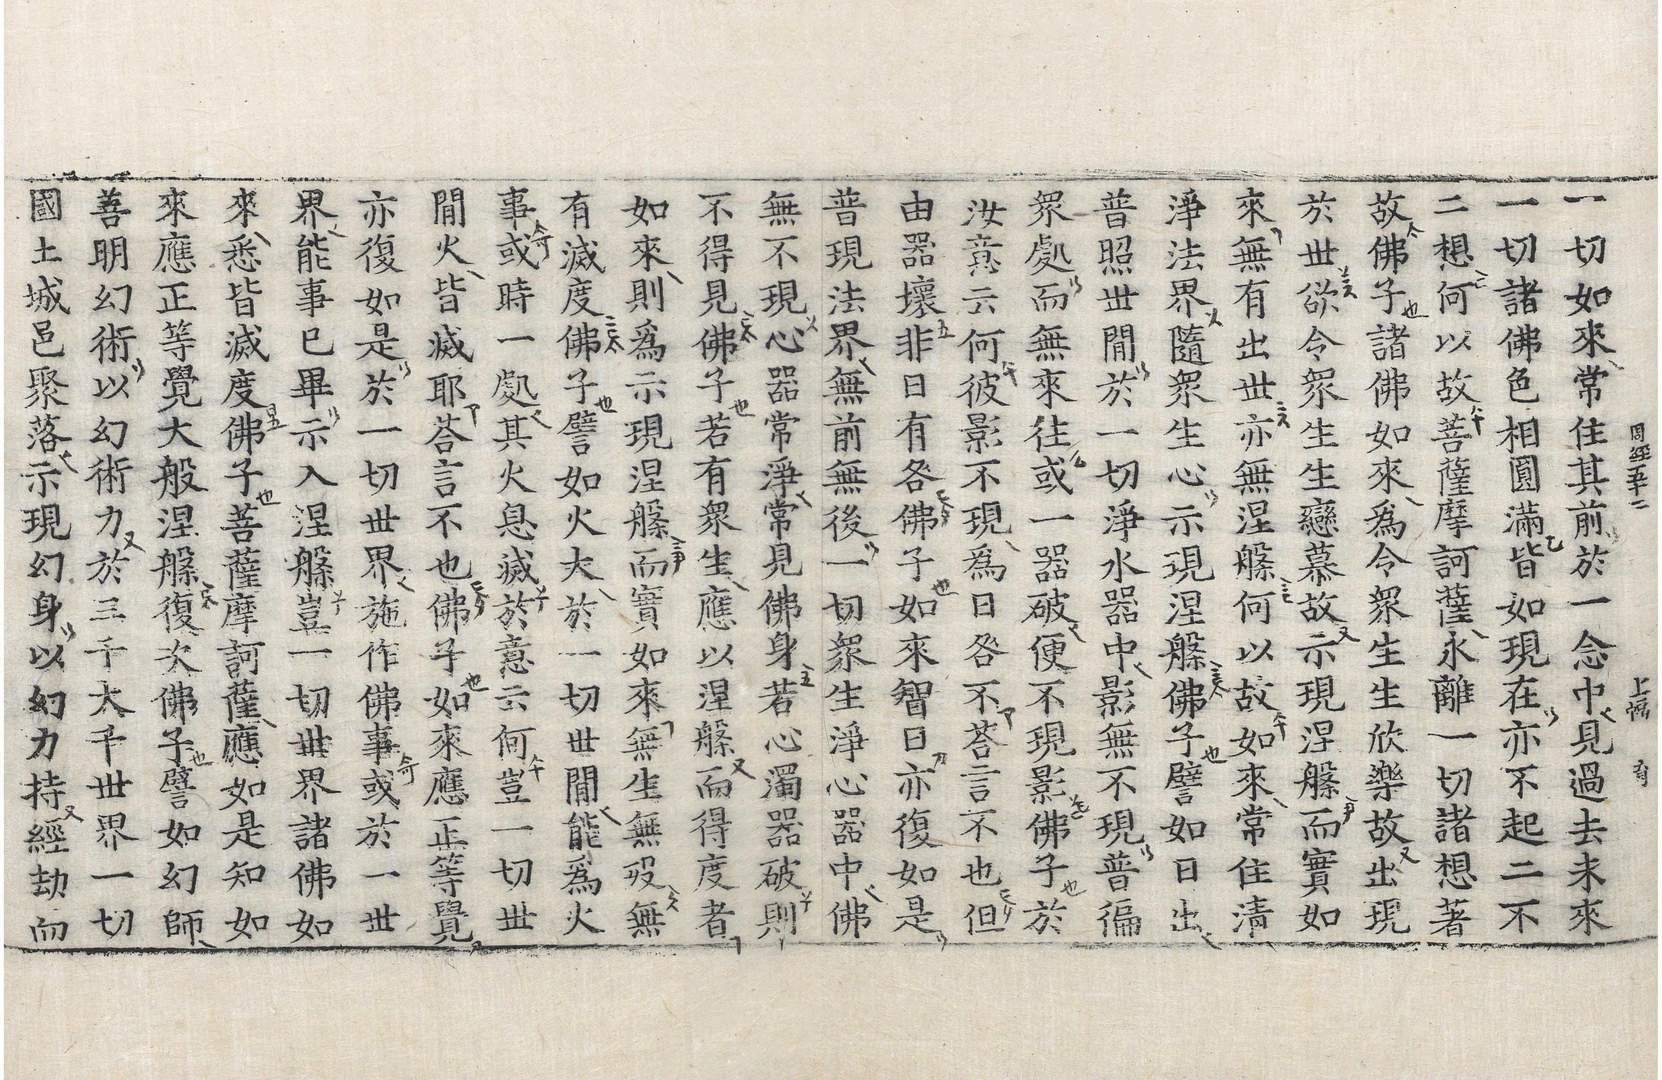 周經五十二 上幅 有
一切如來常住其前於一念中見過去未來
一切諸佛色相圓滿皆如現在亦不起二不
二想何以故菩薩摩訶薩永離一切諸想著
故佛子諸佛如來爲令衆生生欣樂故出現
於世欲令衆生生戀慕故示現涅槃而實如
來無有出世亦無涅槃何以故如來常住清
淨法界隨衆生心示現涅槃佛子譬如日出
普照世閒於一切淨水器中影無不現普徧
衆處而無來往或一器破便不現影佛子於
汝意云何彼影不現爲日咎不荅言不也但
由器壞非日有咎佛子如來智日亦復如是
普現法界無前無後一切衆生淨心器中佛
無不現心器常淨常見佛身若心濁器破則
不得見佛子若有衆生應以涅槃而得度者
如來則爲示現涅槃而實如來無生無歿無
有滅度佛子譬如火大於一切世閒能爲火
事或時一處其火息滅於意云何豈一切世
閒火皆滅耶荅言不也佛子如來應正等覺
亦復如是於一切世界施作佛事或於一世
界能事已畢示入涅槃豈一切世界諸佛如
來悉皆滅度佛子菩薩摩訶薩應如是知如
來應正等覺大般涅槃復次佛子譬如幻師
善明幻術以幻術力於三千大千世界一切
國土城邑聚落示現幻身以幻力持經劫而